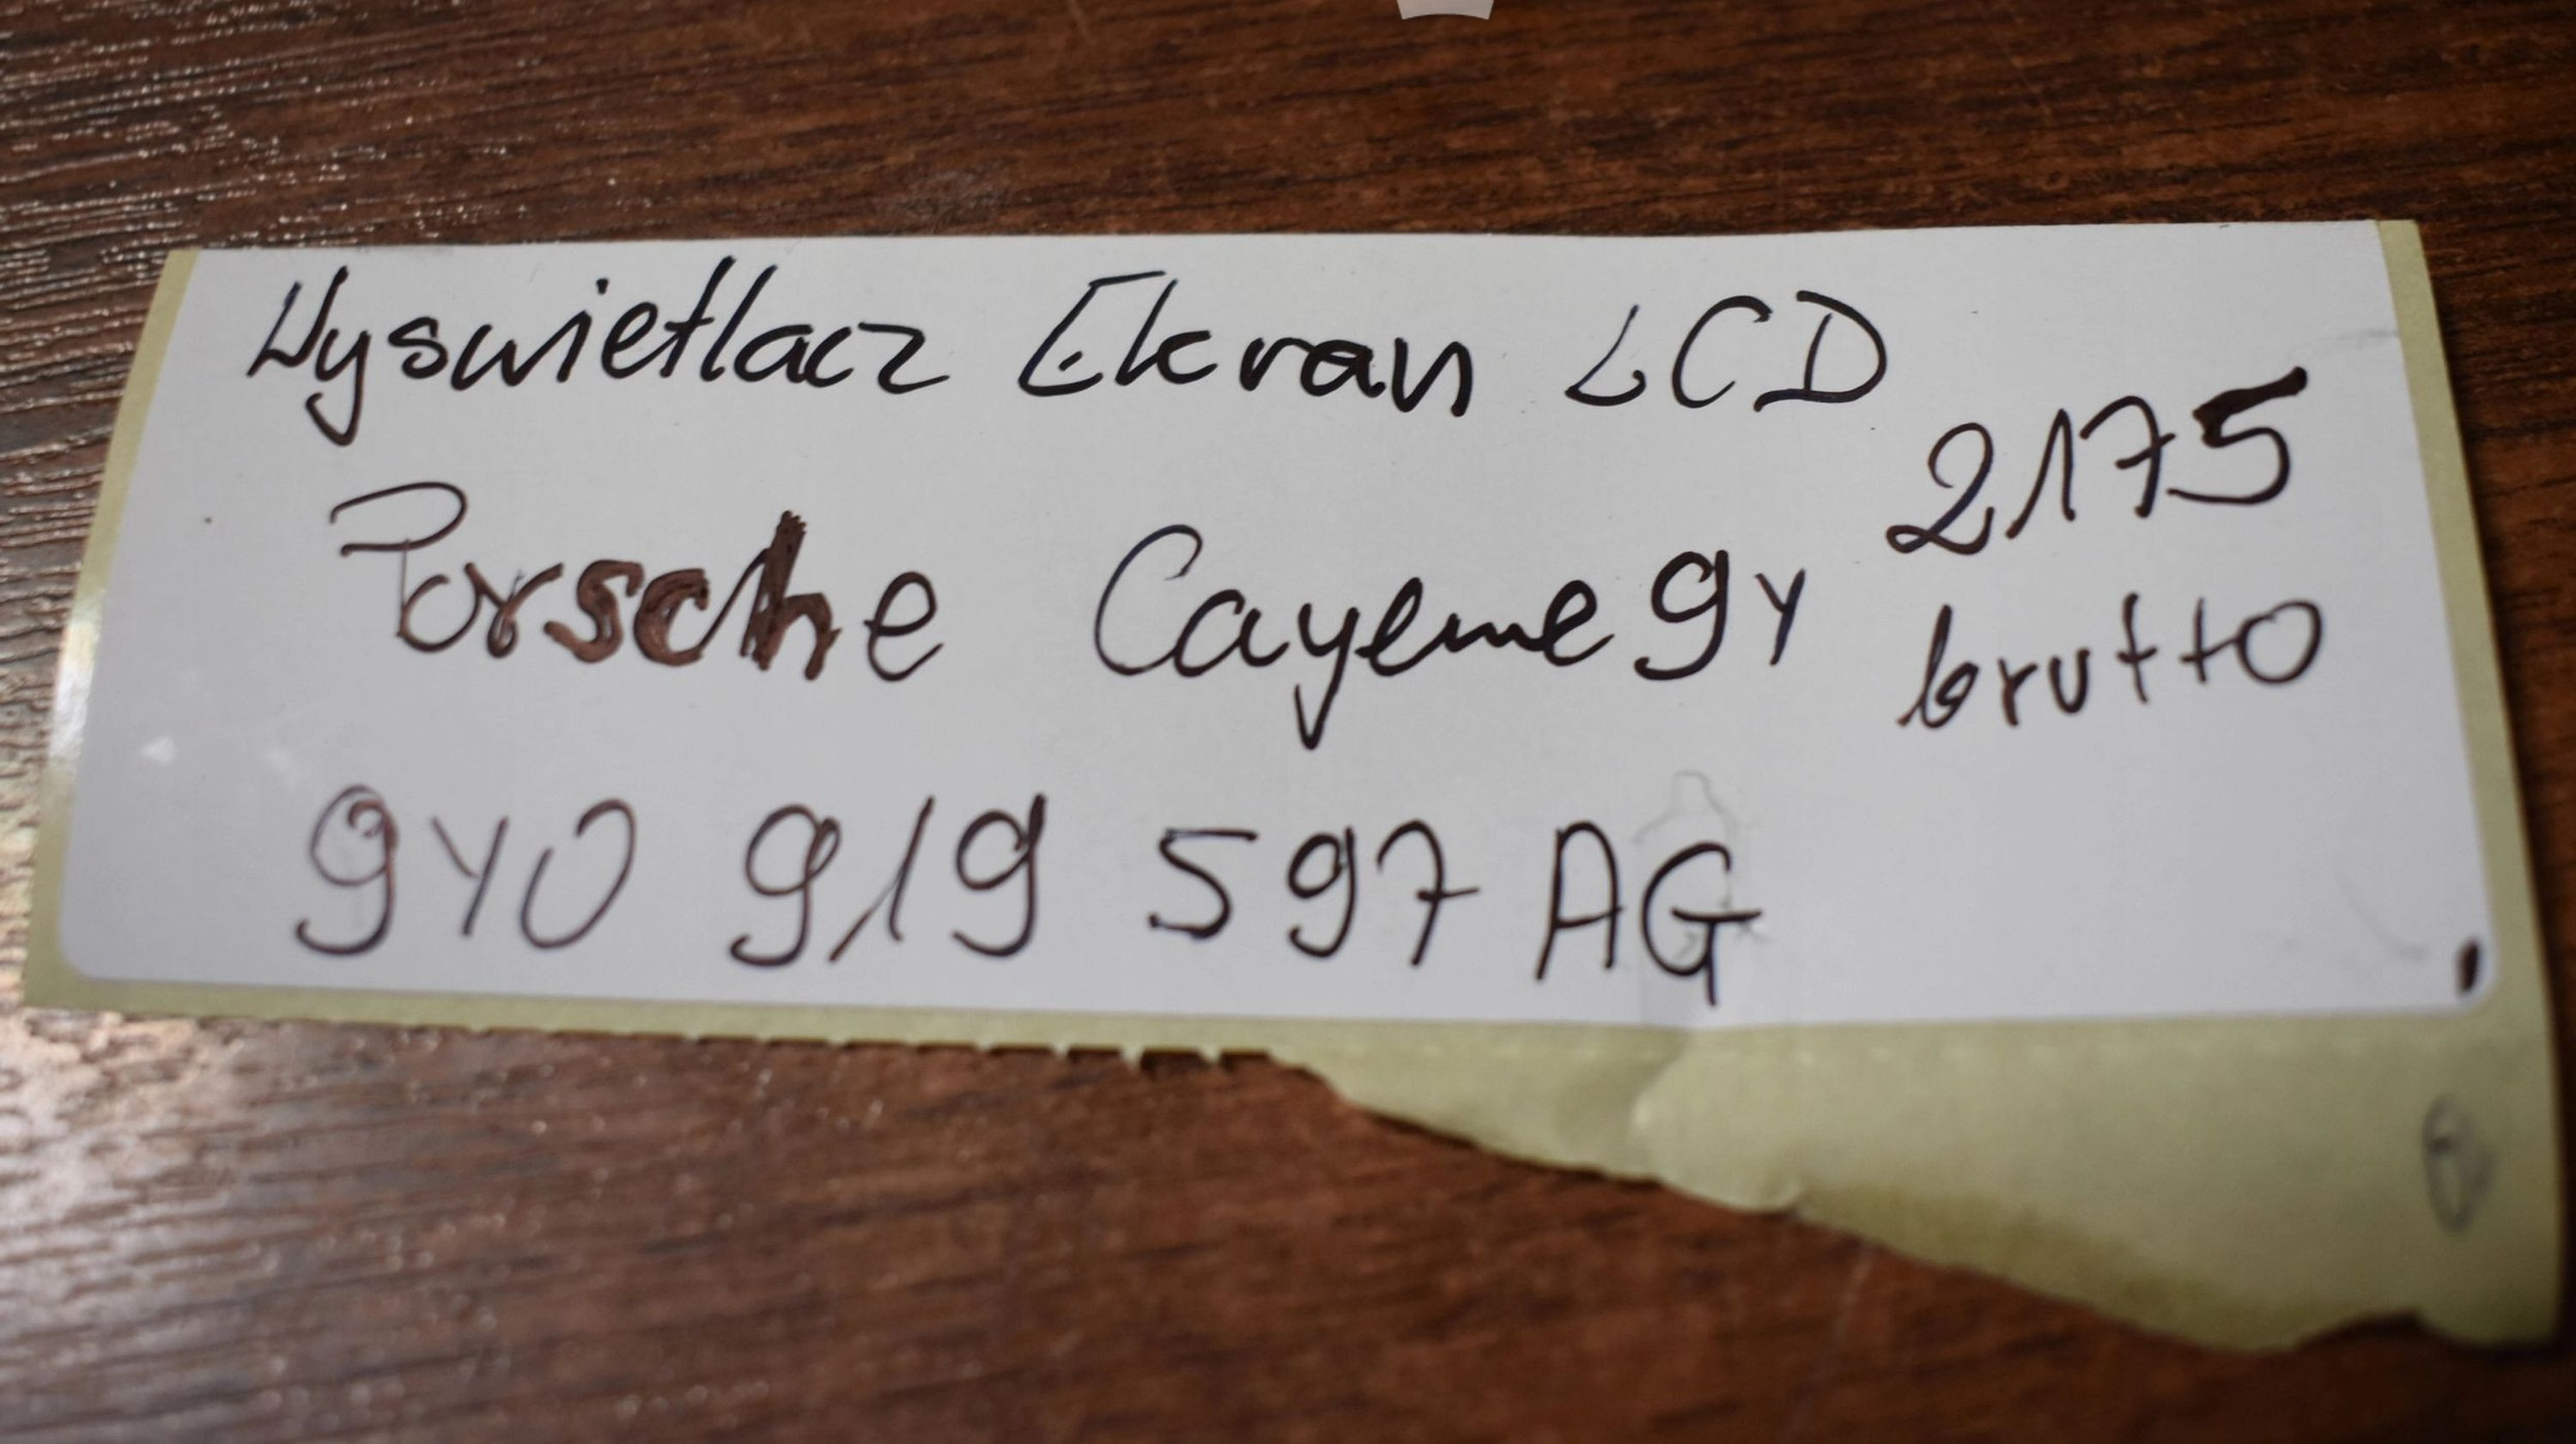 Wyswietlacz Ekran LCD
Porsche Cayenne 9Y
2175
brutto
9Y0 919 597 AG